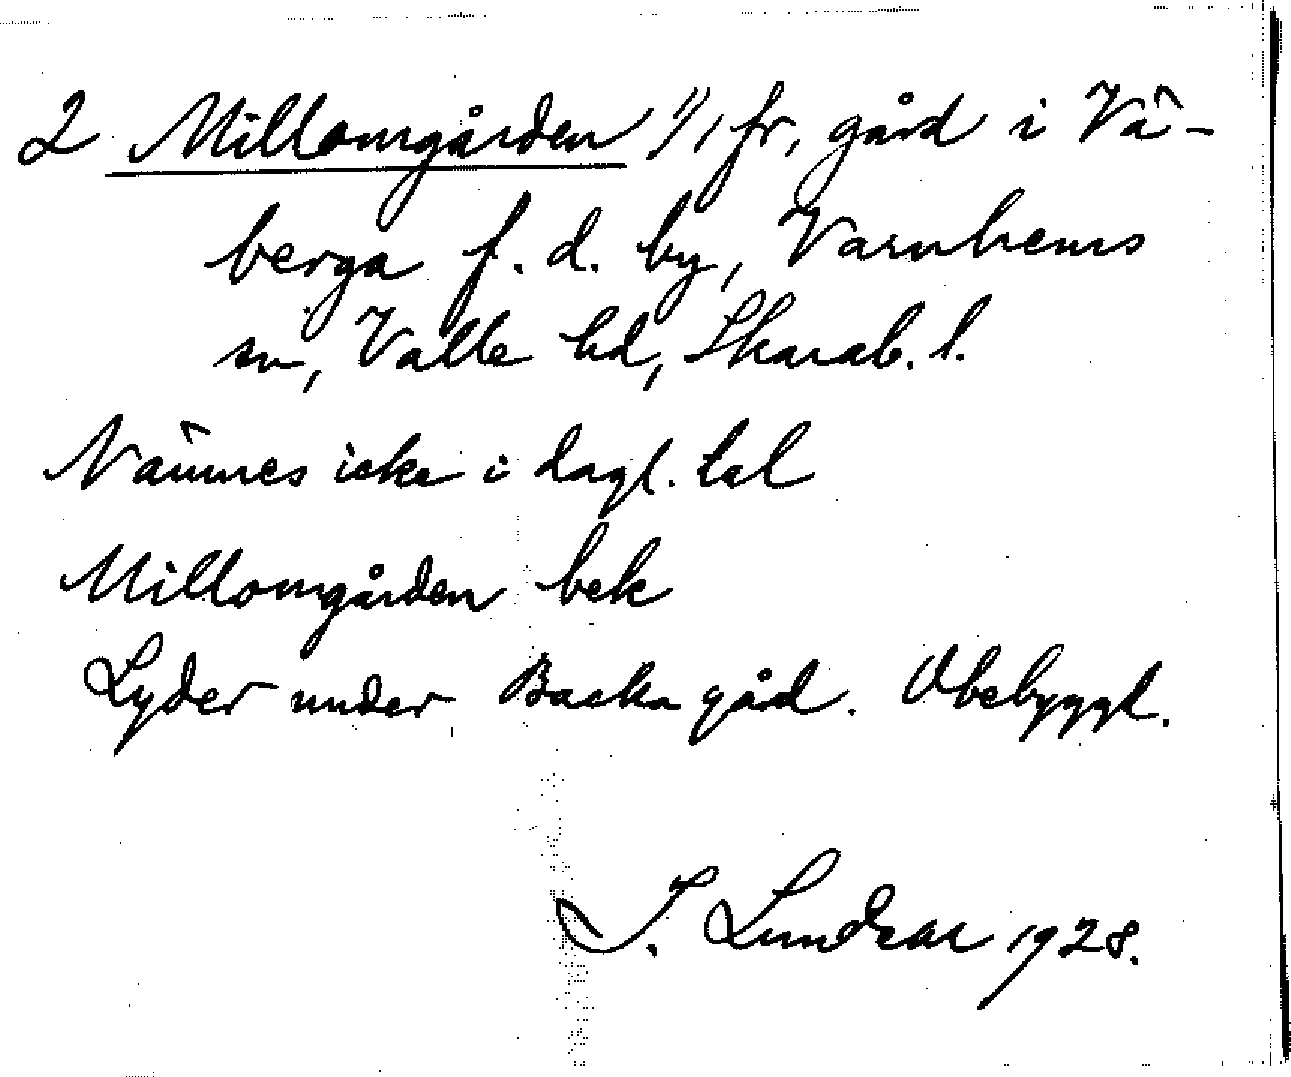 2 Millomgården 1/1 fr, gård i Vä-
berga f. d. by, Varnhems
sn, Valle hd, Skarab. l.
Nämnes icke i dagl. tal
Millomgården bek
Lyder under Backa gård. Obebyggt.
J. Lundear 1928.